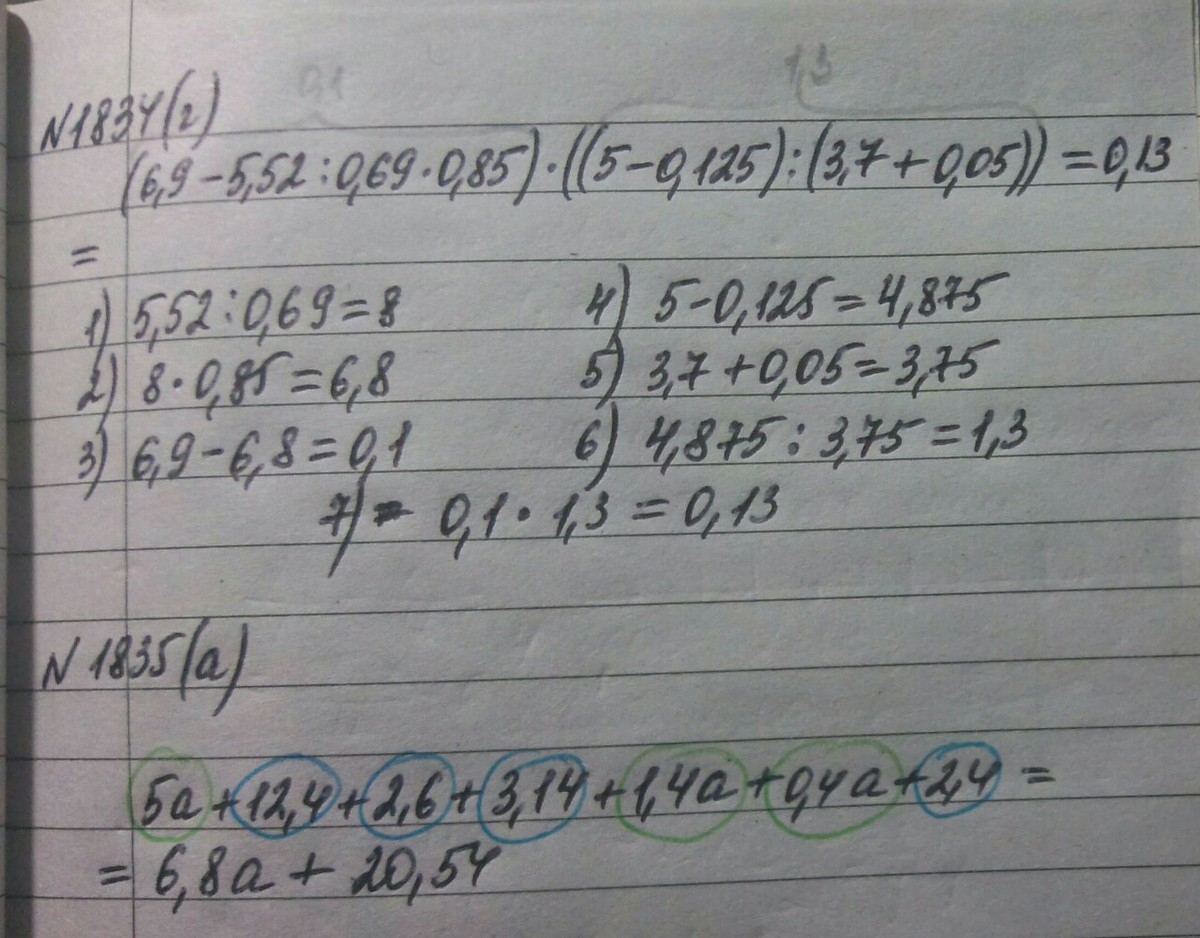 0,1 1,3
N1834(г)
(6,9-5,52:0,69·0,85)·((5-0,125):(3,7+0,05))=0,13
=
1) 5,52:0,69=8 4) 5-0,125=4,875
2) 8·0,85=6,8 5) 3,7+0,05=3,75
3) 6,9-6,8=0,1 6) 4,875:3,75=1,3
7) 0,1·1,3=0,13
N 1835(а)
5a+12,4+2,6+3,14+1,4a+0,4a+2,4=
=6,8a+20,54